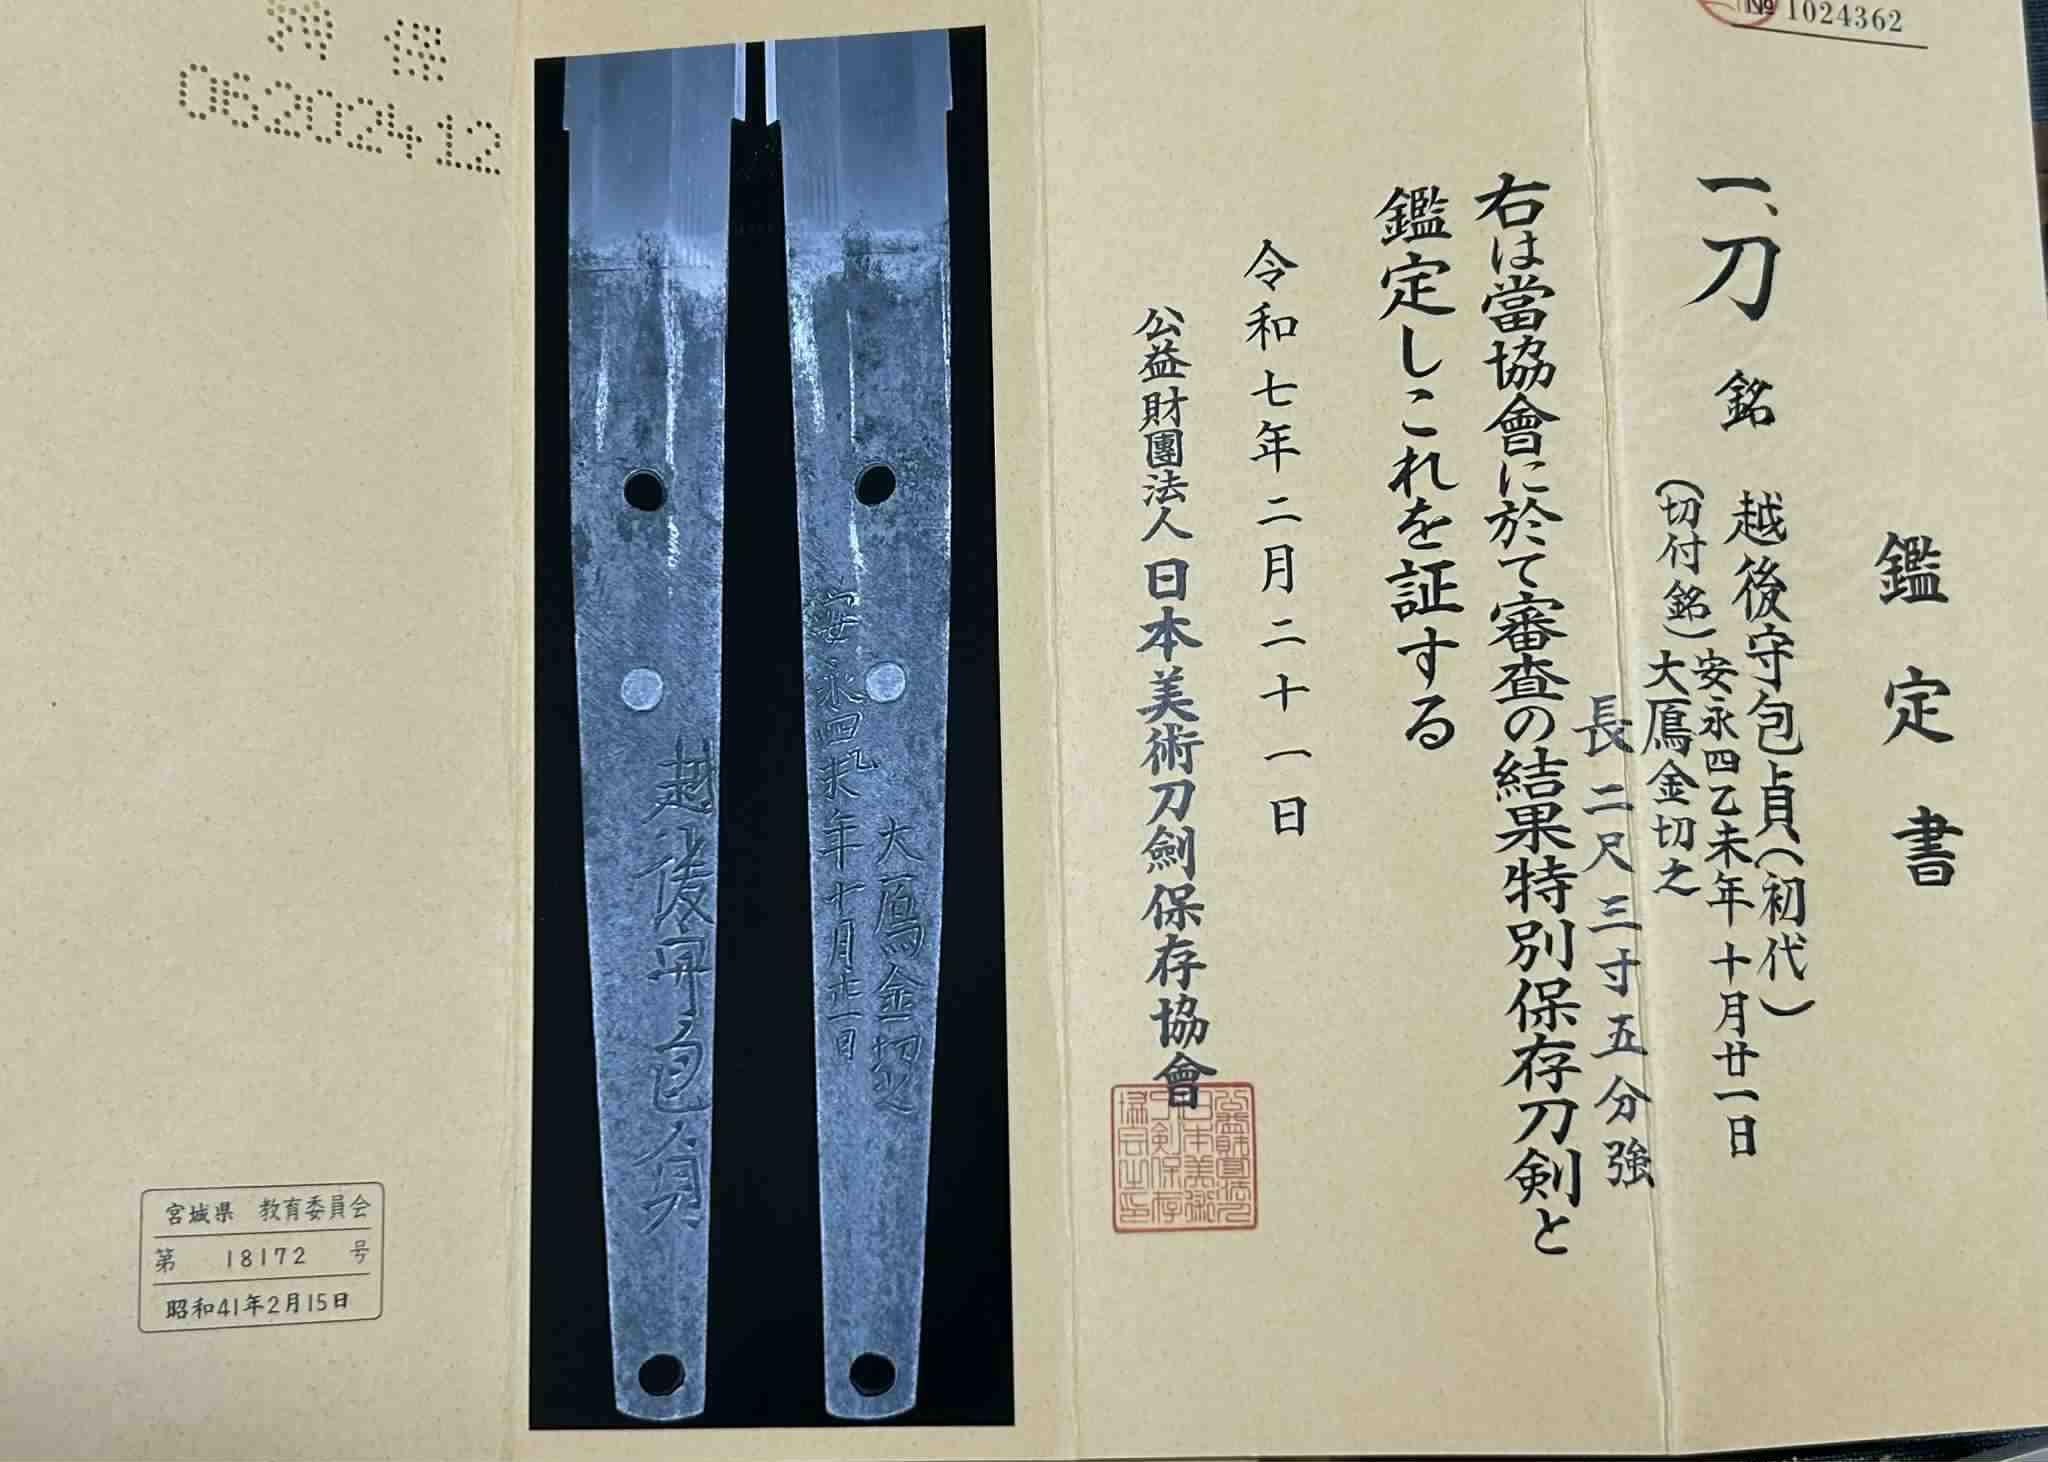 № 1024362
鑑定書
一、刀 銘 越後守包貞(初代)
安永四乙未年十月廿一日
(切付銘)大鴈金切之
長二尺三寸五分強
右は當協會に於て審査の結果特別保存刀剣と
鑑定しこれを証する
令和七年二月二十一日
公益財團法人日本美術刀劍保存協會
安永四乙未年十月廿一日
大鴈金切之
越後守包貞
特保
06202412
宮城県 教育委員会
第 18172 号
昭和41年2月15日